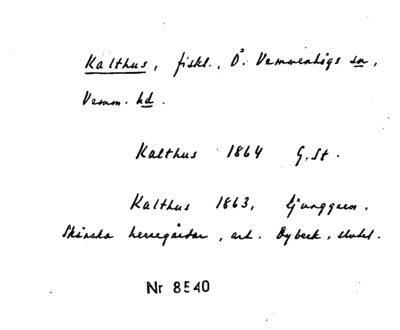 Kalthus, fiskl., Ö. Vemmenhögs sn,
Vemm. hd.
Kalthus 1864 G.St.
Kalthus 1863, Ljunggren.
Skånska herregårdar, art. Dybeck,
Nr 8540